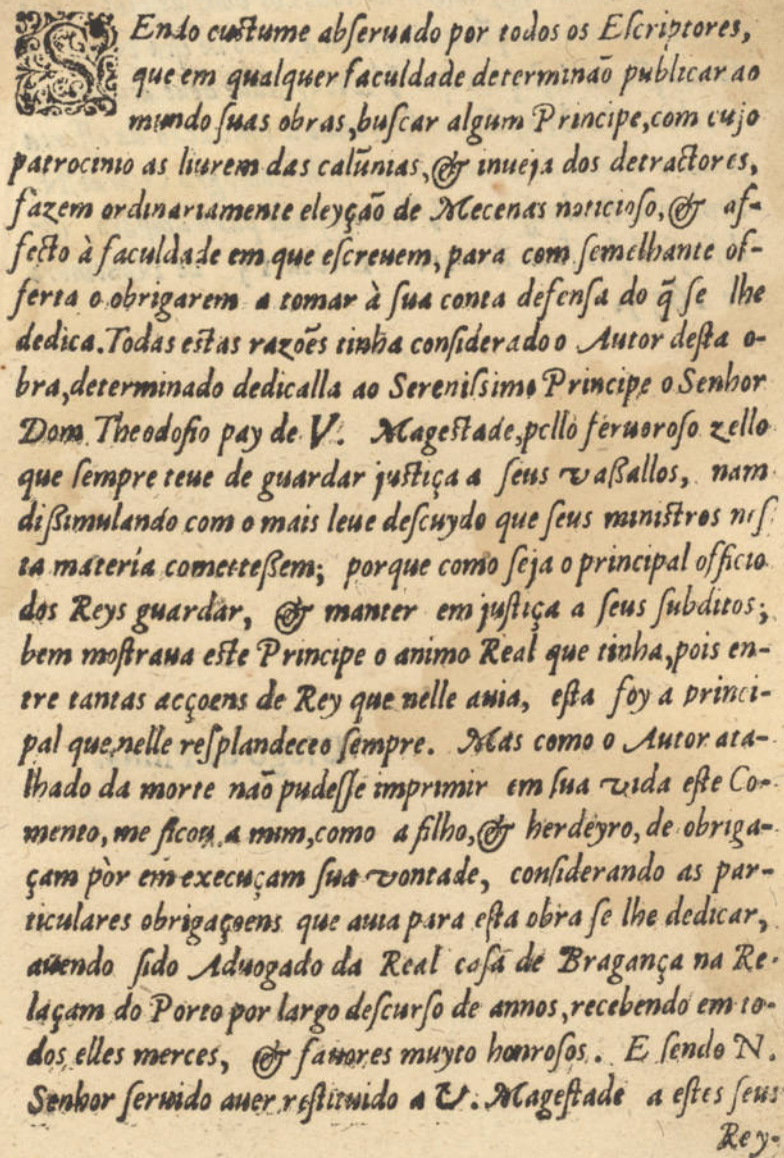 SEndo custume obſeruado por todos os Eſcriptores,
que em qualquer faculdade determinão publicar ao
mundo ſuas obras, buſcar algum Principe, com cujo
patrocinio as liurem das calũnias, & inueja dos detractores,
fazem ordinariamente eleyção de Mecenas noticioſo, & af-
fecto à faculdade em que eſcreuem, para com ſemelhante of-
ferta o obrigarem a tomar à ſua conta defenſa do q̃ ſe lhe
dedica. Todas eſtas razoẽs tinha conſiderado o Autor deſta o-
bra, determinado dedicalla ao Sereniſsimo Principe o Senhor
Dom Theodoſio pay de V. Mageſtade, pello feruoroſo zello
que ſempre teue de guardar juſtiça a ſeus vaßallos, nam
dißimulando com o mais leue deſcuydo que ſeus miniſtros neſ
ta materia cometteßem; porque como ſeja o principal officio
dos Reys guardar, & manter em juſtiça a ſeus ſubditos;
bem moſtraua eſte Principe o animo Real que tinha, pois en-
tre tantas acçoens de Rey que nelle auia, eſta foy a princi-
pal que nelle reſplandeceo ſempre. Mas como o Autor ata-
lhado da morte não pudeſſe imprimir em ſua vida eſte Co-
mento, me ficou a mim, como a filho, & herdeyro, de obriga-
çam pòr em execuçam ſua vontade, conſiderando as par-
ticulares obrigaçoens que auia para eſta obra ſe lhe dedicar,
auendo ſido Aduogado da Real caſa de Bragança na Re-
laçam do Porto por largo deſcurſo de annos, recebendo em to-
dos elles merces, & fauores muyto honroſos. E ſendo N.
Senhor ſeruido auer reſtituido a V. Mageſtade a eſtes ſeus
Rey-